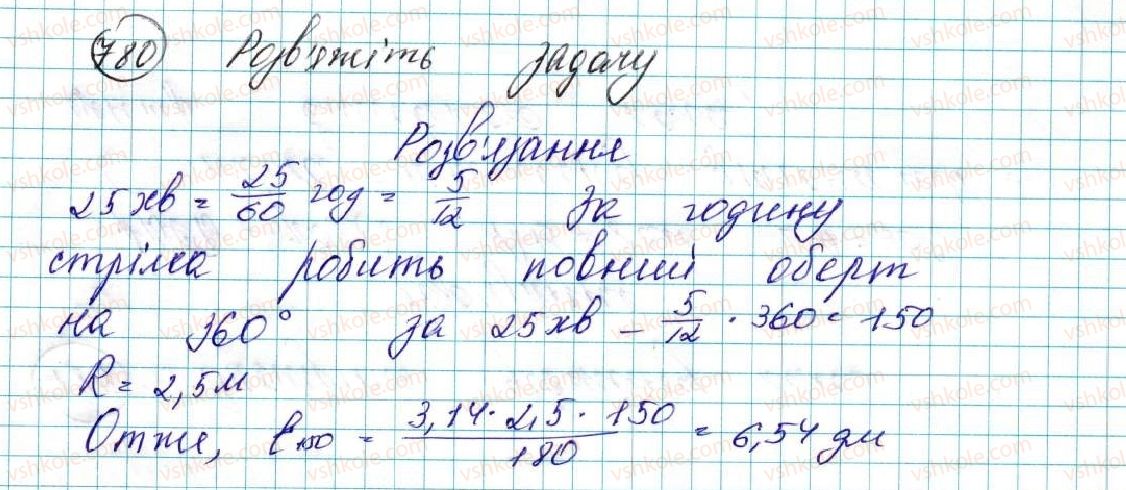 780 Розв'яжіть задачу
Розв'язання
25 хв = 25/60 год = 5/12 За годину
стрілка робить повний оберт
на 360° за 25 хв – 5/12 · 360 = 150
R = 2,5 м
Отже, l₁₅₀ = 3,14 · 2,5 · 150 / 180 = 6,54 дм
vshkole.com